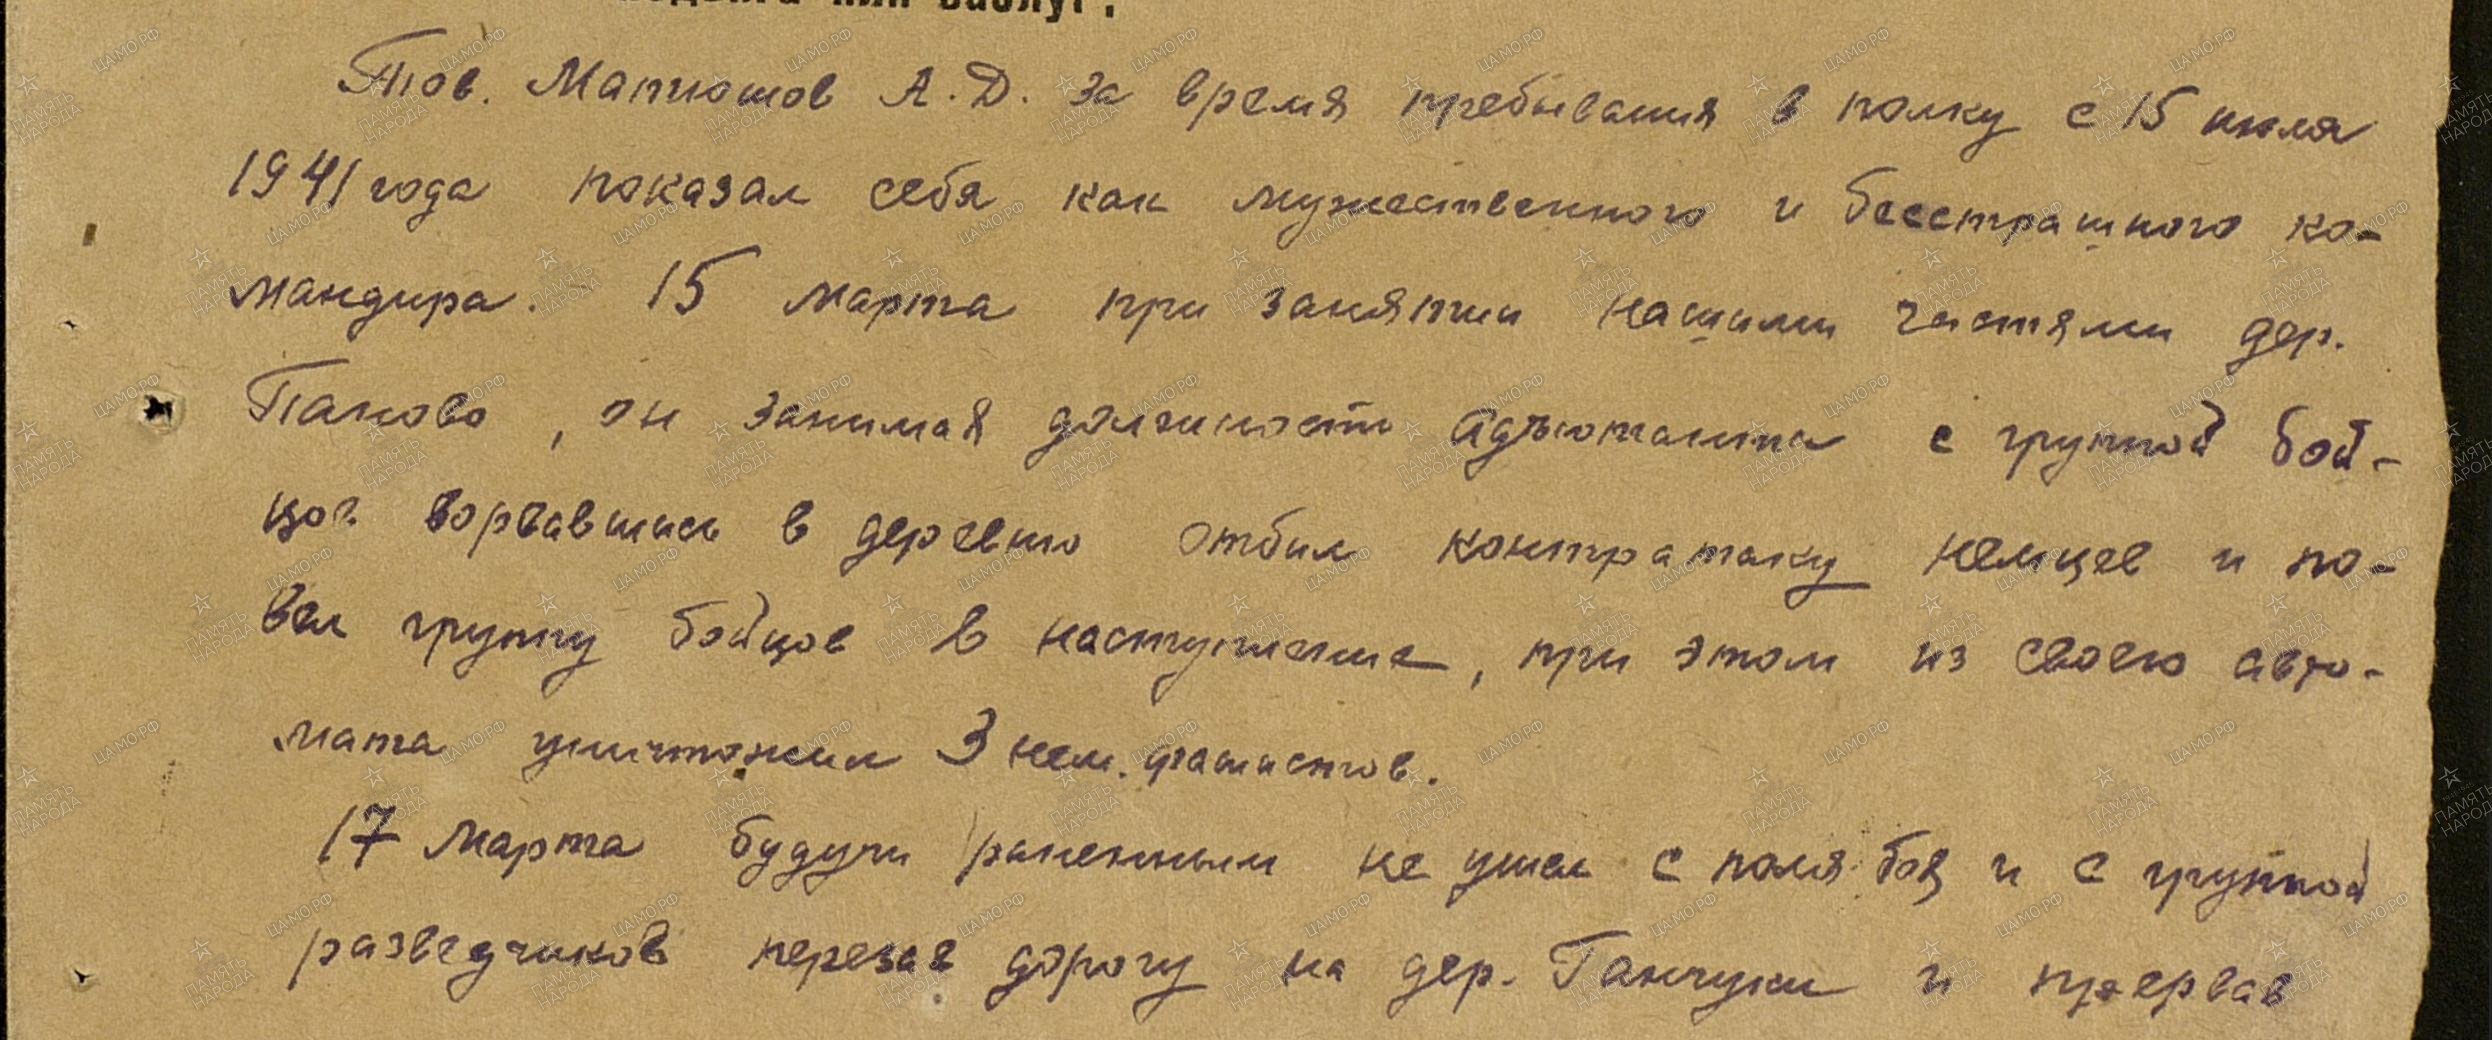 Тов. Матюшов А.Д. за время пребывания в полку с 15 июля
1941 года показал себя как мужественного и бесстрашного ко-
мандира. 15 марта при занятии нашими частями дер.
Паново, он занимая должность адъютанта с группой бой-
цов ворвавшись в деревню отбил контратаку немцев и по-
вел группу бойцов в наступление, при этом из своего авто-
мата уничтожил 3 нем. фашистов.
17 марта будучи раненным не ушел с поля боя и с группой
разведчиков перезав дорогу на дер. Ганчуки и прервав